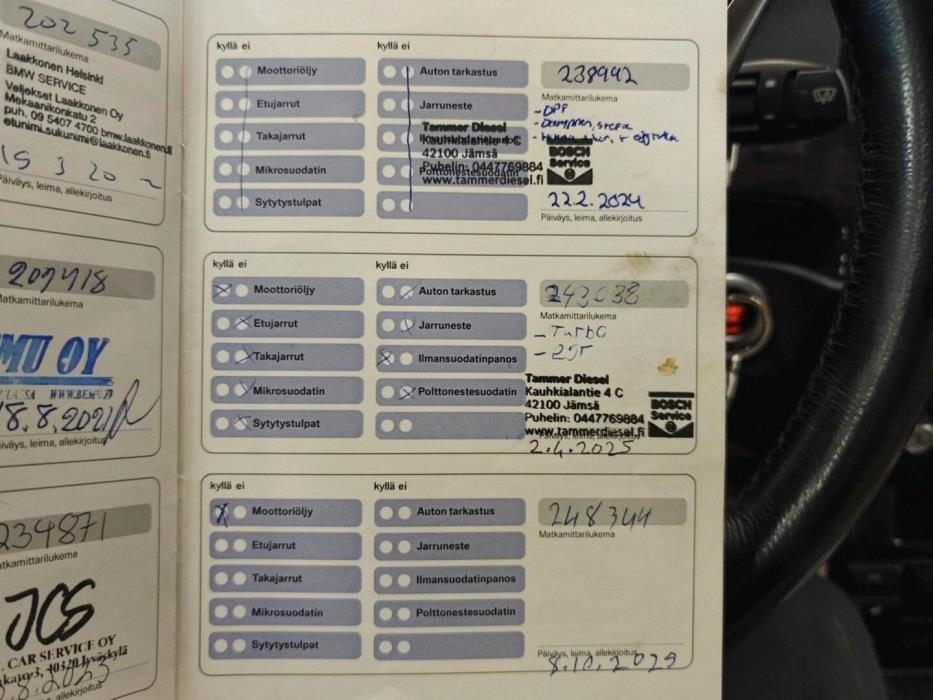 202 535
Matkamittarilukema
Laakkonen Helsinki
BMW SERVICE
Veljekset Laakkonen Oy
Mekaanikonkatu 2
puh. 09 5407 4700 bmw.laakkonen
etunimi.sukunimi@laakkonen.fi
15 3 20
Päiväys, leima, allekirjoitus
209418
Matkamittarilukema
MU OY
WWW.BEMU.FI
18.8.2021
Päiväys, leima, allekirjoitus
234871
Matkamittarilukema
JCS
CAR SERVICE OY
3, 40320 Jyväskylä
8.2023
allekirjoitus
kyllä ei
Moottoriöljy
Etujarrut
Takajarrut
Mikrosuodatin
Sytytystulpat
kyllä ei
Auton tarkastus
Jarruneste
Ilmansuodatinpanos
Polttonestesuodatin
238992
Matkamittarilukema
- DPF
Tammer Diesel
Kauhkialantie 4 C
42100 Jämsä
Puhelin: 0447769884
www.tammerdiesel.fi
BOSCH
Service
22.2.2024
Päiväys, leima, allekirjoitus
kyllä ei
Moottoriöljy
Etujarrut
Takajarrut
Mikrosuodatin
Sytytystulpat
kyllä ei
Auton tarkastus
Jarruneste
Ilmansuodatinpanos
Polttonestesuodatin
243038
Matkamittarilukema
- Turbo
- EGR
Tammer Diesel
Kauhkialantie 4 C
42100 Jämsä
Puhelin: 0447769884
www.tammerdiesel.fi
BOSCH
Service
Päiväys, leima, allekirjoitus
2.4.2025
kyllä ei
Moottoriöljy
Etujarrut
Takajarrut
Mikrosuodatin
Sytytystulpat
kyllä ei
Auton tarkastus
Jarruneste
Ilmansuodatinpanos
Polttonestesuodatin
248344
Matkamittarilukema
Päiväys, leima, allekirjoitus
8.10.2029